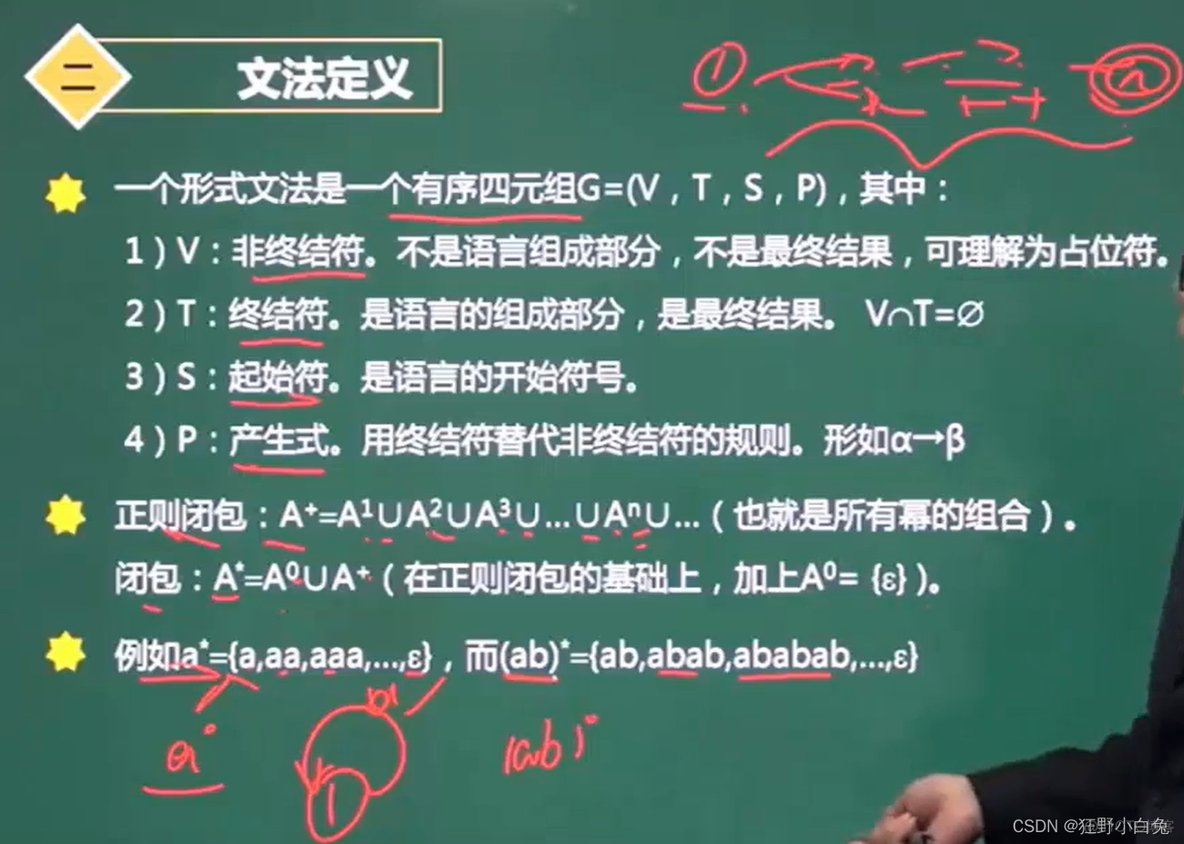 二 文法定义
一个形式文法是一个有序四元组G=(V，T，S，P)，其中：
1）V：非终结符。不是语言组成部分，不是最终结果，可理解为占位符。
2）T：终结符。是语言的组成部分，是最终结果。 V∩T=∅
3）S：起始符。是语言的开始符号。
4）P：产生式。用终结符替代非终结符的规则。形如α→β
正则闭包：A⁺=A¹∪A²∪A³∪...∪Aⁿ∪...（也就是所有幂的组合）。
闭包：A*=A⁰∪A⁺（在正则闭包的基础上，加上A⁰= {ε} )。
例如a*={a,aa,aaa,...,ε}，而(ab)*={ab,abab,ababab,...,ε}
CSDN @狂野小白兔